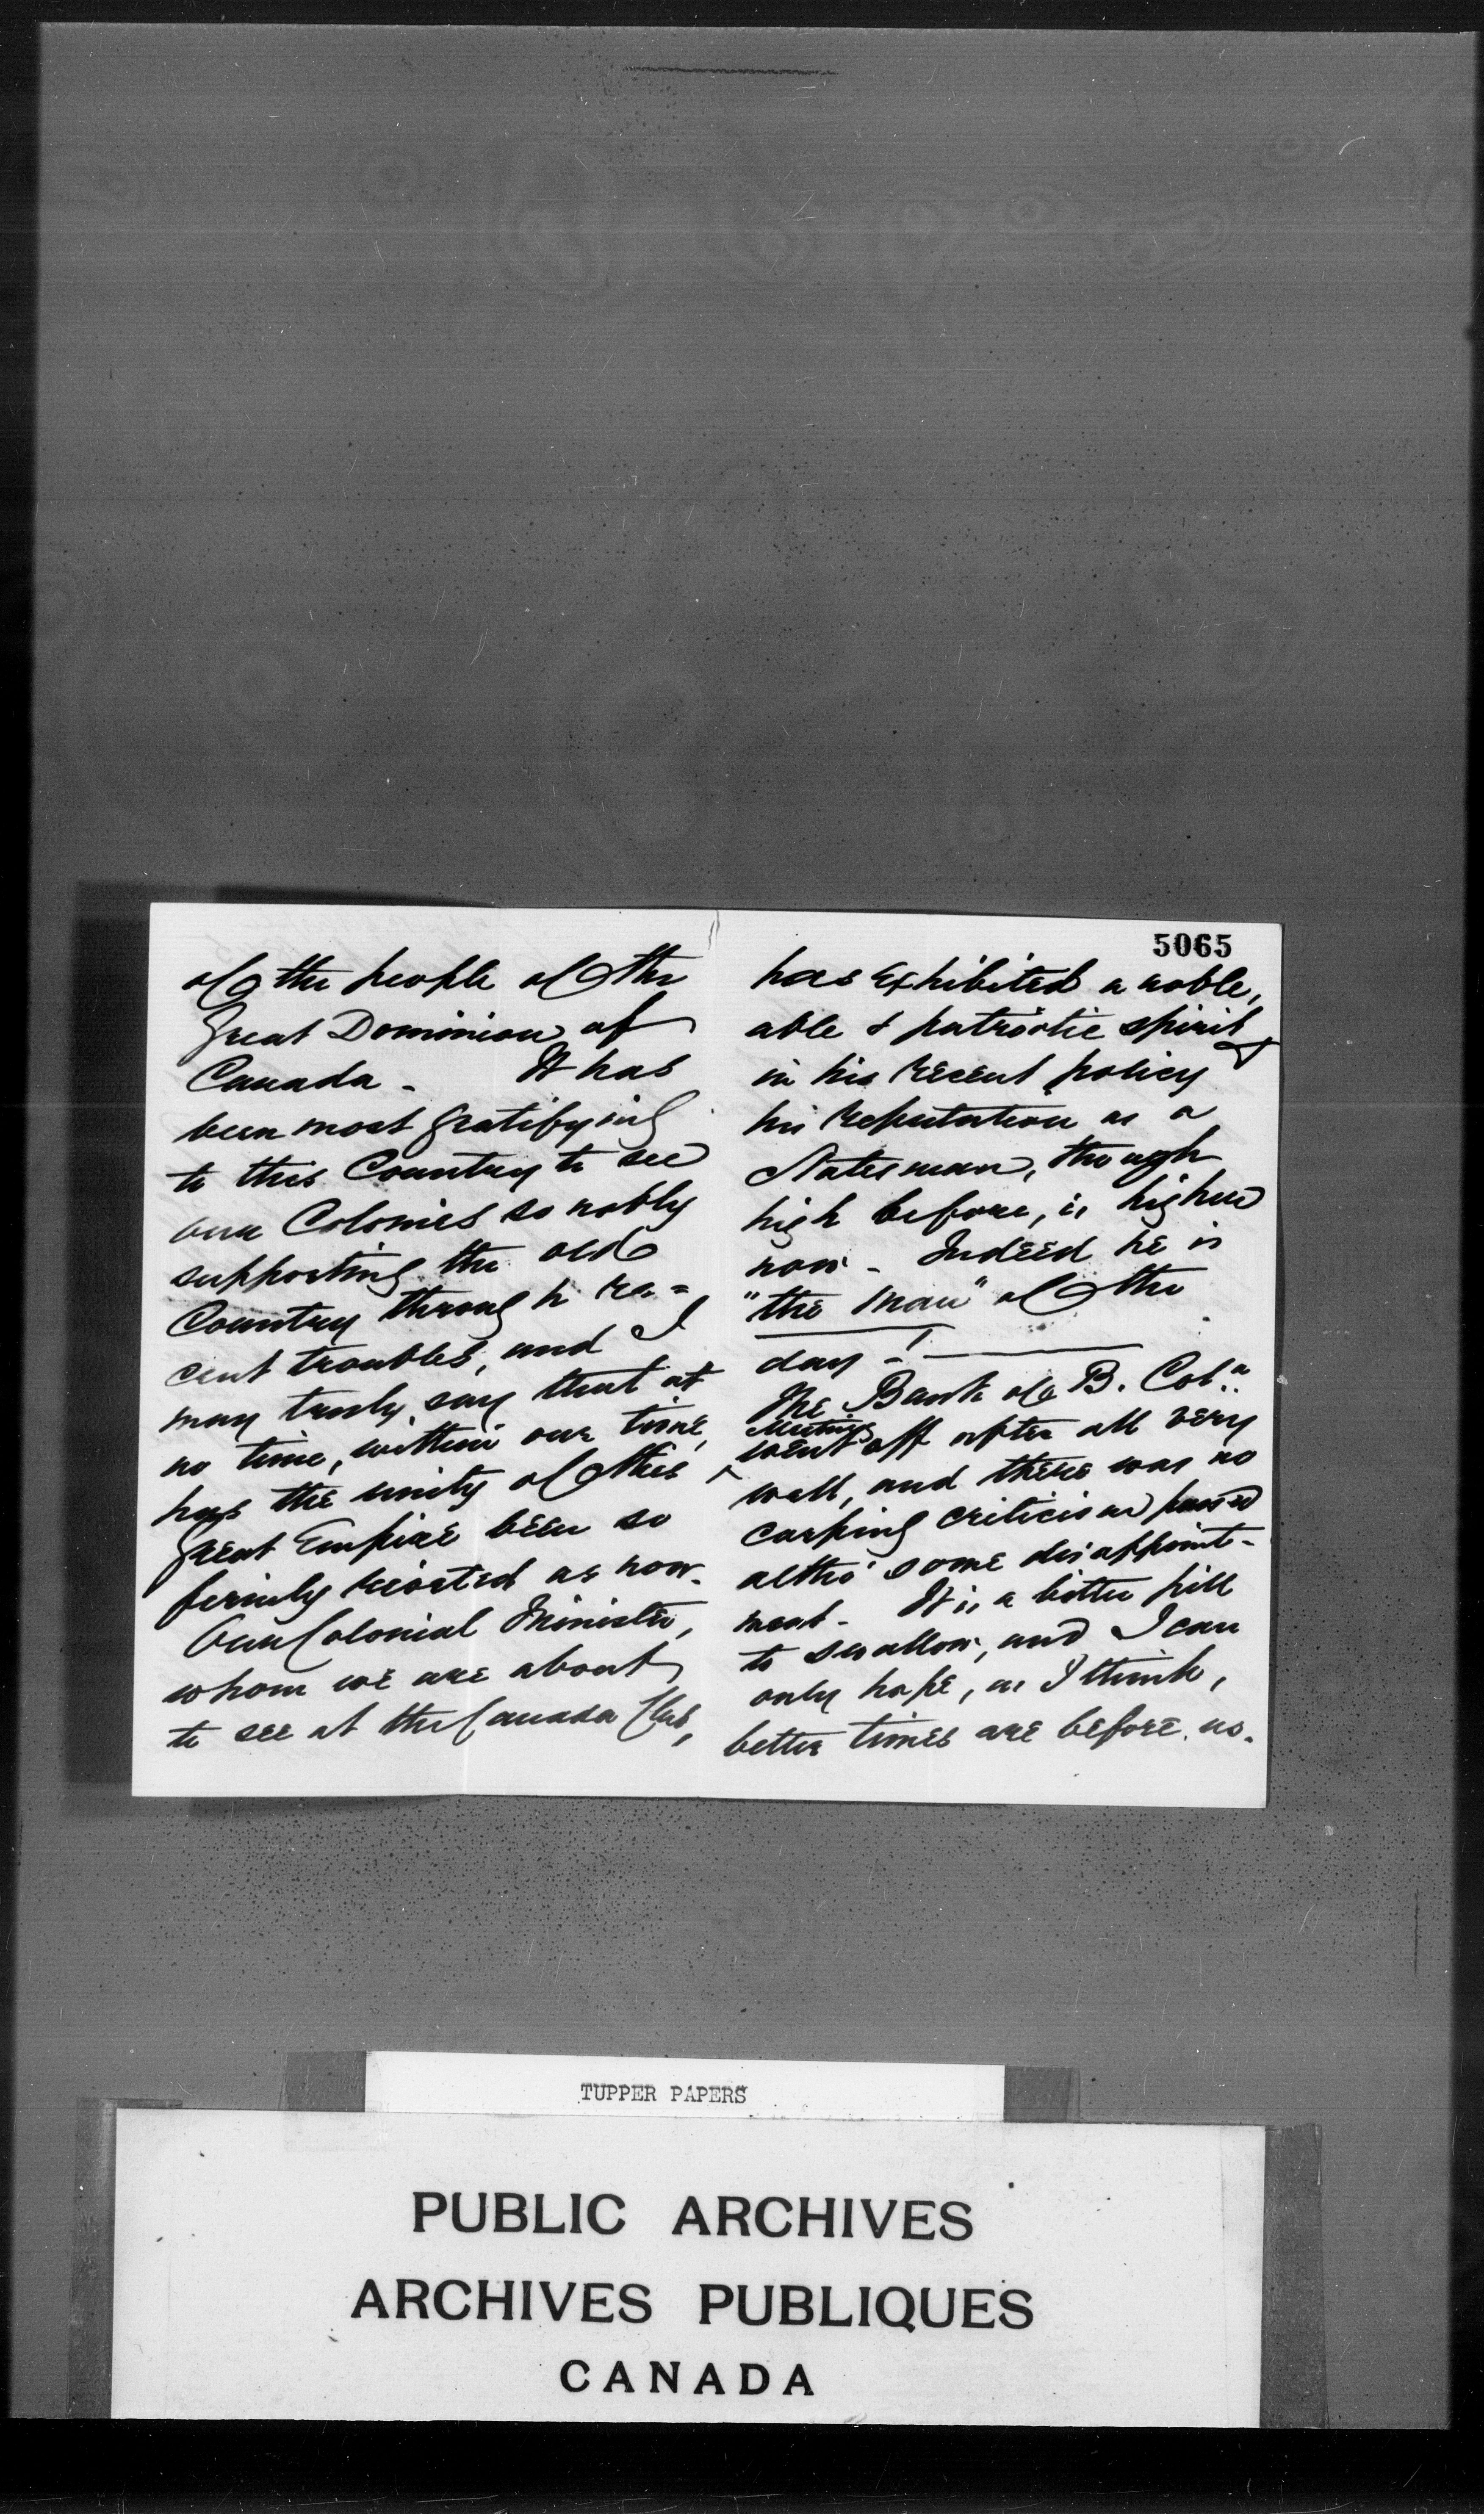 of the people of the
Great Dominion of
Canada - It has
been most gratifying
to this Country to see
our Colonies so nobly
supporting the old
Country through re=
cent troubles, and I
may truly say that at
no time, within our time,
has the unity of this
great Empire been so
firmly rivited as now.
Our Colonial Minister,
whom we are about
to see at the Canada Club,
5065
has exhibited a noble,
able & patriotic spirit
in his recent policy &
his reputation as a
Statesman, though
high before, is higher
now - Indeed he is
"the man" of the
day - !
The Bank of B. Col.a
Meeting
went off after all very
well, and there was no
carping criticism passed
altho' some disappoint-
ment - It is a bitter pill
to swallow, and I can
only hope, as I think,
better times are before us.
TUPPER PAPERS
PUBLIC ARCHIVES
ARCHIVES PUBLIQUES
CANADA